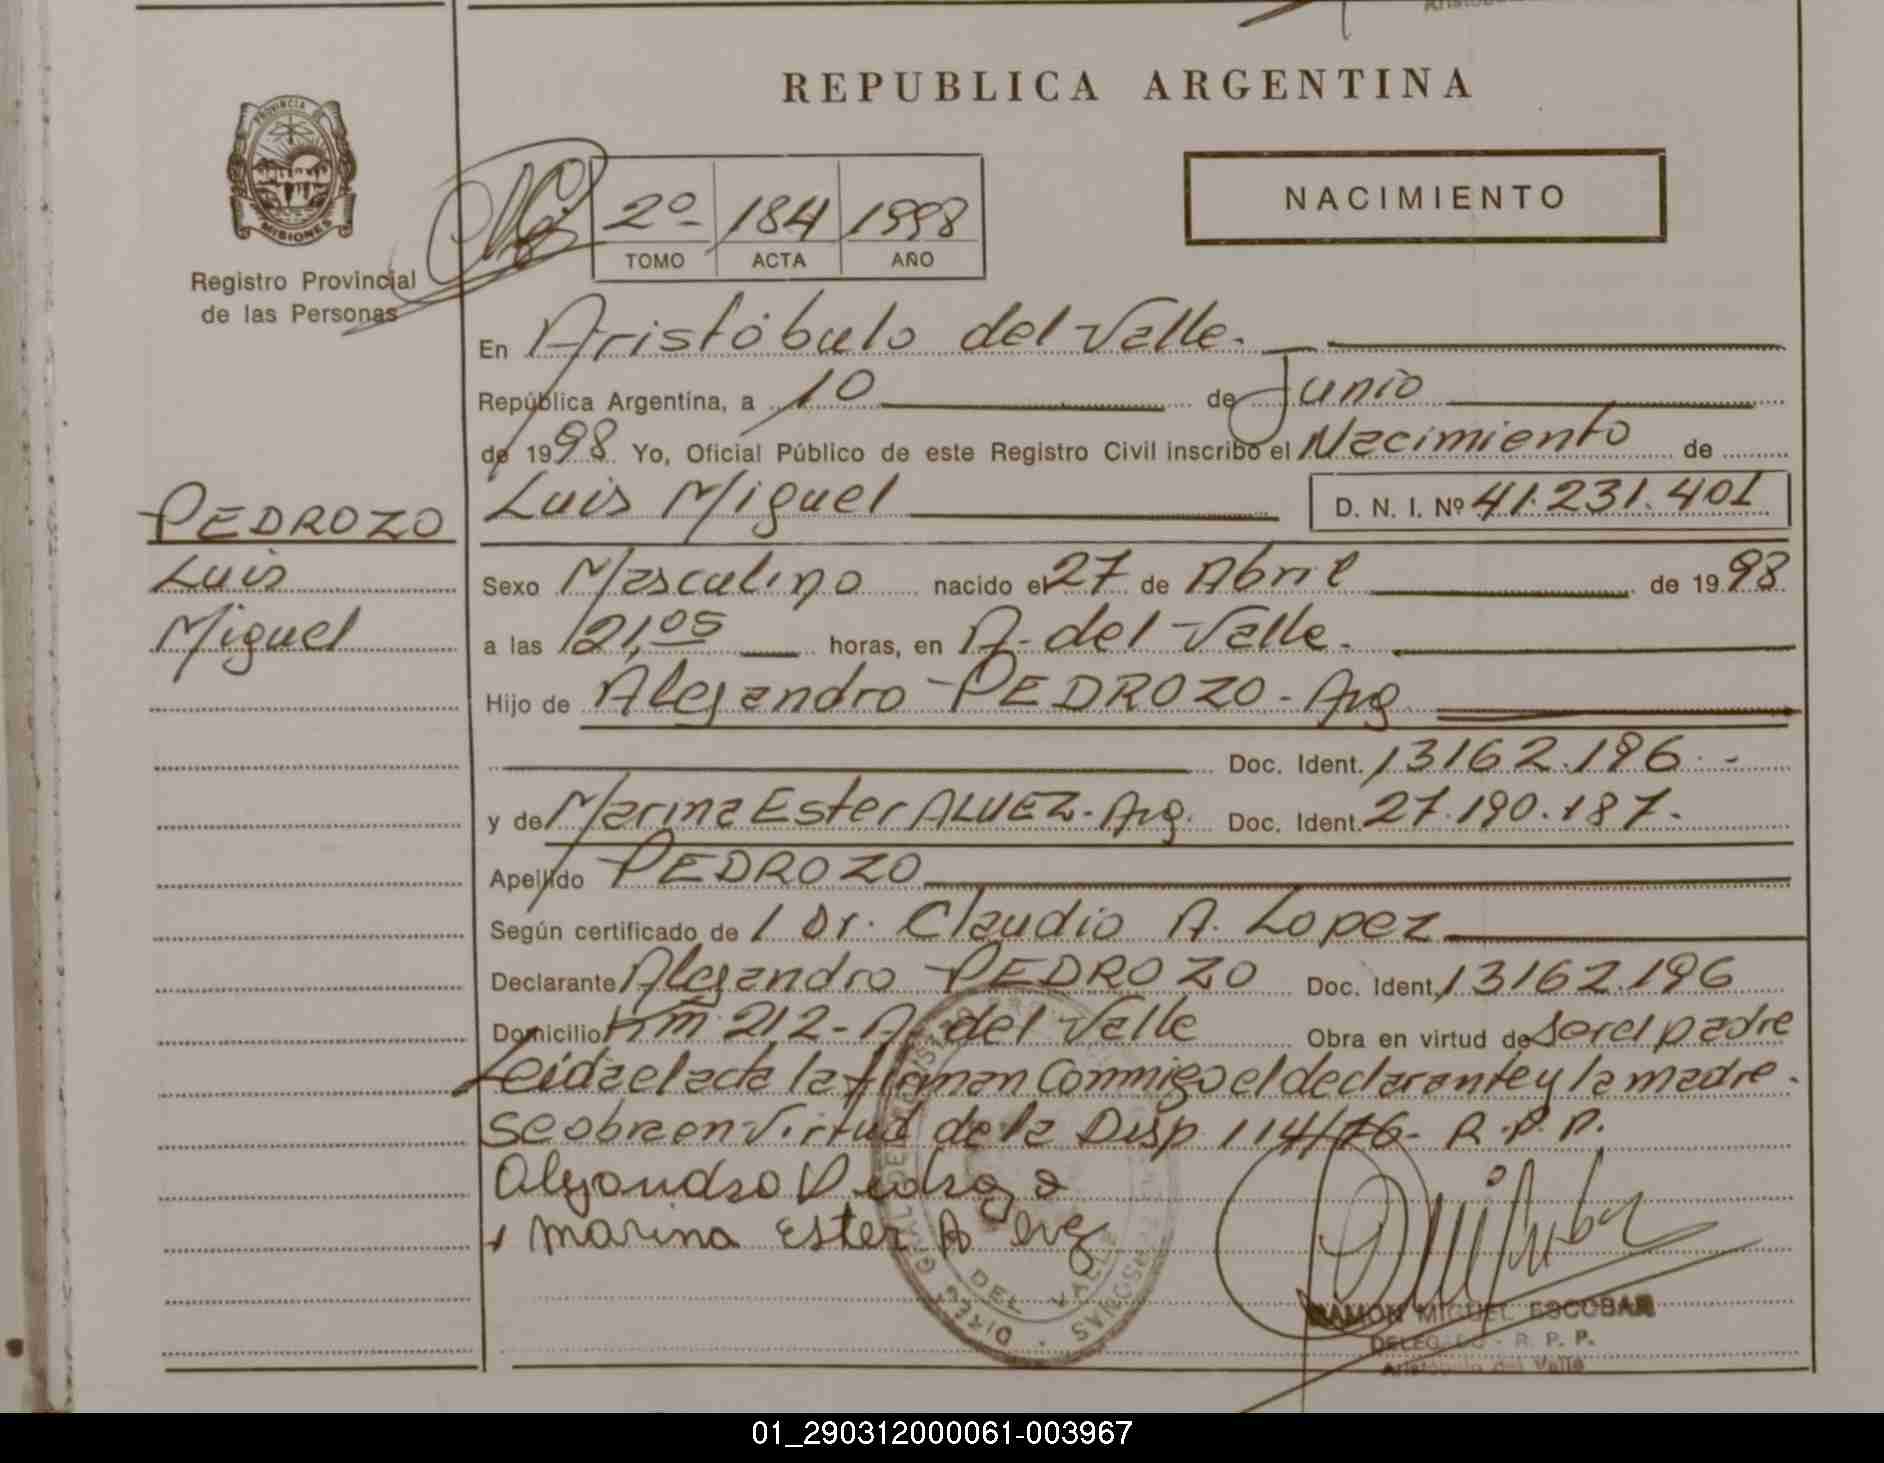 REPUBLICA ARGENTINA
PROVINCIA
MISIONES
Registro Provincial
de las Personas
NACIMIENTO
2º 184 1998
TOMO ACTA AÑO
En Aristóbulo del Valle.
República Argentina, a 10 de Junio
de 1998 Yo, Oficial Público de este Registro Civil inscribo el Nacimiento de
PEDROZO
Luis
Miguel
Luis Miguel D. N. I. Nº 41.231.401
Sexo Masculino nacido el 27 de Abril de 1998
a las 21,05 horas, en A. del Valle.
Hijo de Alejandro PEDROZO - Arg
Doc. Ident. 13162.196.-
y de Marina Ester ALVEZ - Arg. Doc. Ident. 27.190.187.-
Apellido PEDROZO
Según certificado de / Dr. Claudio A. Lopez
Declarante Alejandro PEDROZO Doc. Ident. 13162.196
Domicilio Km 212 - A. del Valle Obra en virtud de ser el padre
Leida el acta la firman Conmigo el declarante y la madre.
Se obra en virtud de la Disp 114/76 - R.P.P.
Alejandro Pedrozo
Marina Ester A
DEL VALLE
RAMON MIGUEL ESCOBAR
DELEGADO - R. P. P.
Aristóbulo del Valle
01_290312000061-003967